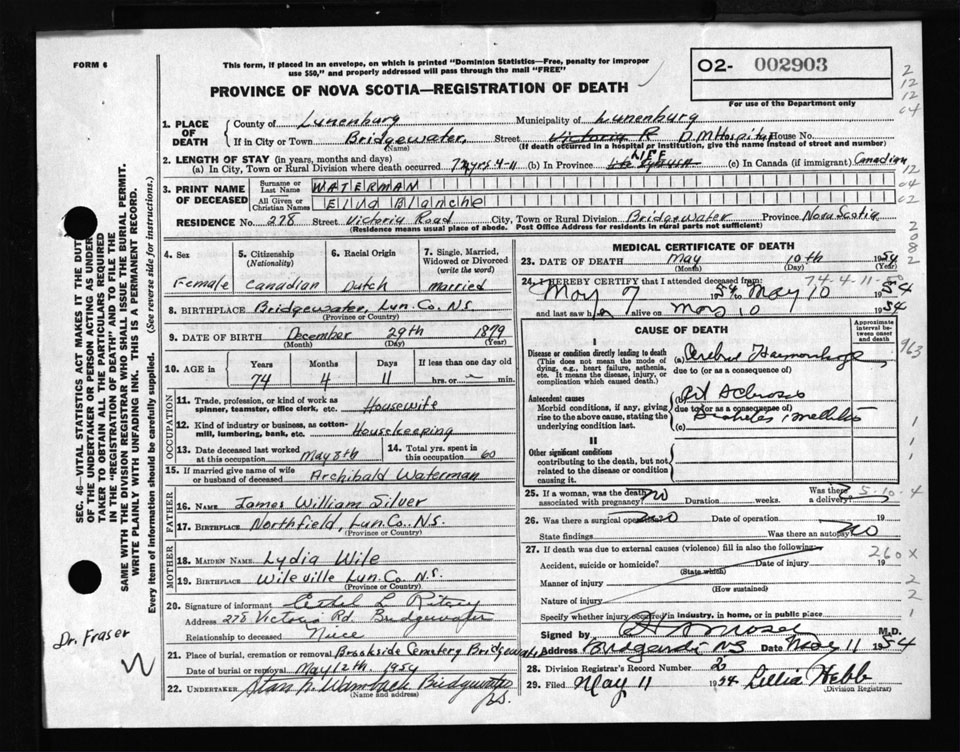 FORM 6
This form, if placed in an envelope, on which is printed "Dominion Statistics—Free, penalty for improper
use $50," and properly addressed will pass through the mail "FREE"
PROVINCE OF NOVA SCOTIA—REGISTRATION OF DEATH
02- 002903
For use of the Department only
1. PLACE OF DEATH
County of Lunenburg Municipality of Lunenburg
If in City or Town Bridgewater, Street Victoria R D.M Hospital House No.
(Name) (If death occurred in a hospital or institution, give the name instead of street and number)
2. LENGTH OF STAY (in years, months and days)
(a) In City, Town or Rural Division where death occurred 74 yrs. 4-11 (b) In Province LIFE (c) In Canada (if immigrant) Canadian
3. PRINT NAME OF DECEASED
Surname or Last Name WATERMAN
All Given or Christian Names Blanche
RESIDENCE No. 278 Street Victoria Road City, Town or Rural Division Bridgewater Province Nova Scotia
(Residence means usual place of abode. Post Office Address for residents in rural parts not sufficient)
4. Sex 5. Citizenship (Nationality) 6. Racial Origin 7. Single, Married, Widowed or Divorced (write the word)
Female Canadian Dutch married
8. BIRTHPLACE Bridgewater, Lun. Co. N.S.
(Province or Country)
9. DATE OF BIRTH December 29th 1879
(Month) (Day) (Year)
10. AGE in Years Months Days If less than one day old
74 4 11 hrs. or min.
OCCUPATION
11. Trade, profession, or kind of work as spinner, teamster, office clerk, etc. Housewife
12. Kind of industry or business, as cotton-mill, lumbering, bank, etc. Housekeeping
13. Date deceased last worked at this occupation May 8th 14. Total yrs. spent in this occupation 60
15. If married give name of wife or husband of deceased Archibald Waterman
FATHER
16. NAME James William Silver
17. BIRTHPLACE Northfield, Lun. Co. N.S.
(Province or Country)
MOTHER
18. MAIDEN NAME Lydia Wile
19. BIRTHPLACE Wileville Lun. Co. N.S.
(Province or Country)
20. Signature of informant Ethel L Ritcey
Address 278 Victoria Rd. Bridgewater
Relationship to deceased Niece
21. Place of burial, cremation or removal Brookside Cemetery Bridgewater
Date of burial or removal May 12th 1954
22. UNDERTAKER Stan Wambach Bridgewater N.S.
(Name and address)
MEDICAL CERTIFICATE OF DEATH
23. DATE OF DEATH May 10th 1954
(Month) (Day) (Year)
74-4-11
24. I HEREBY CERTIFY that I attended deceased from:
May 7 1954 to May 10 1954
and last saw h alive on May 10 1954
CAUSE OF DEATH
Approximate interval between onset and death
I
Disease or condition directly leading to death (a) Cerebral Haemorrhage
(This does not mean the mode of dying, e.g., heart failure, asthenia, etc. It means the disease, injury, or complication which caused death.)
due to (or as a consequence of)
Antecedent causes
Morbid conditions, if any, giving rise to the above cause, stating the underlying condition last.
(b) Art Sclerosis
due to (or as a consequence of)
(c) Diabetes mellitus
II
Other significant conditions
contributing to the death, but not related to the disease or condition causing it.
25. If a woman, was the death associated with pregnancy? no Duration weeks. Was there a delivery?
26. Was there a surgical operation? no Date of operation 19
State findings Was there an autopsy? no
27. If death was due to external causes (violence) fill in also the following:
Accident, suicide or homicide? Date of injury 19
(State which)
Manner of injury
(How sustained)
Nature of injury
Specify whether injury occurred in industry, in home, or in public place
Signed by M.D.
Address Bridgewater NS Date May 11 1954
28. Division Registrar's Record Number
29. Filed May 11 1954 Lillia Webb
(Division Registrar)
SEC. 46—VITAL STATISTICS ACT MAKES IT THE DUTY
OF THE UNDERTAKER OR PERSON ACTING AS UNDER-
TAKER TO OBTAIN ALL THE PARTICULARS REQUIRED
IN THE "REGISTRATION OF DEATH" AND TO FILE THE
SAME WITH THE DIVISION REGISTRAR WHO SHALL ISSUE THE BURIAL PERMIT.
WRITE PLAINLY WITH UNFADING INK. THIS IS A PERMANENT RECORD.
Every item of information should be carefully supplied. (See reverse side for instructions.)
Dr. Fraser
2
12
12
04
12
04
02
2
0
8
2
963
1
1
1
5-10-4
260 X
2
2
1